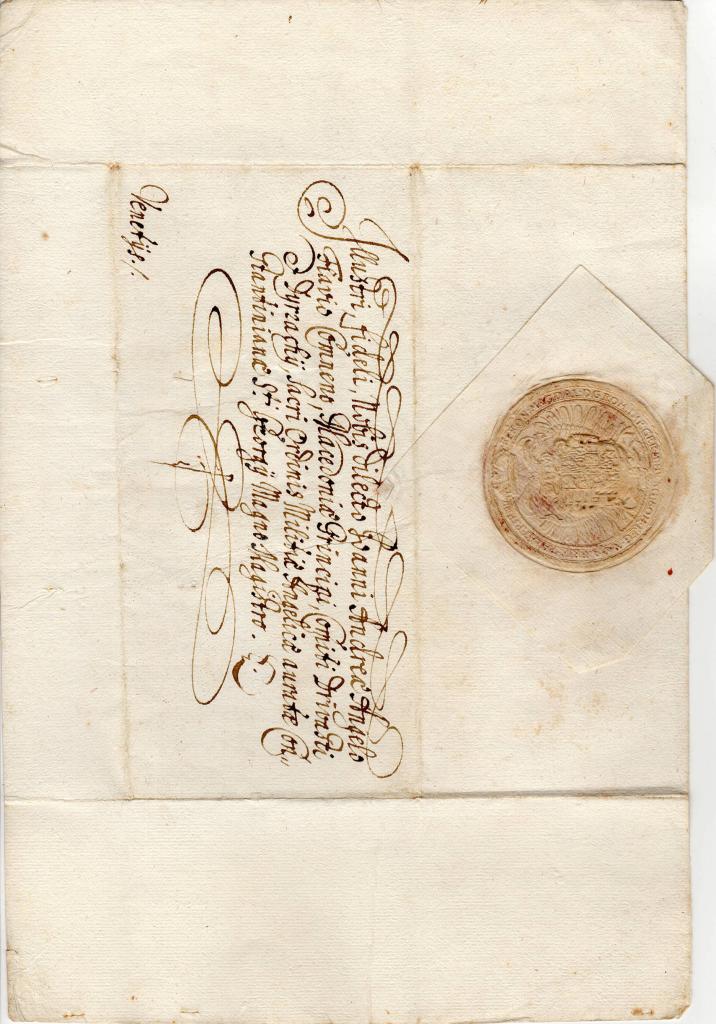 Illustri, fideli, Nobis dilecto Joanni Andreæ Angelo
Flavio Comneno, Macedoniæ Principi, Comiti Drivasti
& Dyrrachij, Sacri Ordinis Militiæ Angelicæ auratæ Con„
stantinianæ S.ti Georgij Magno Magistro. &.
Venetijs ./.